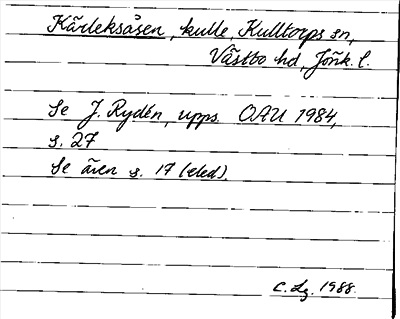 Kärleksåsen, kulle, Kulltorps sn,
Västbo hd, Jönk. l.
Se J. Rydén, upps. OAU 1984,
s. 27
Se även s. 17 (eled).
C. Lg. 1988.